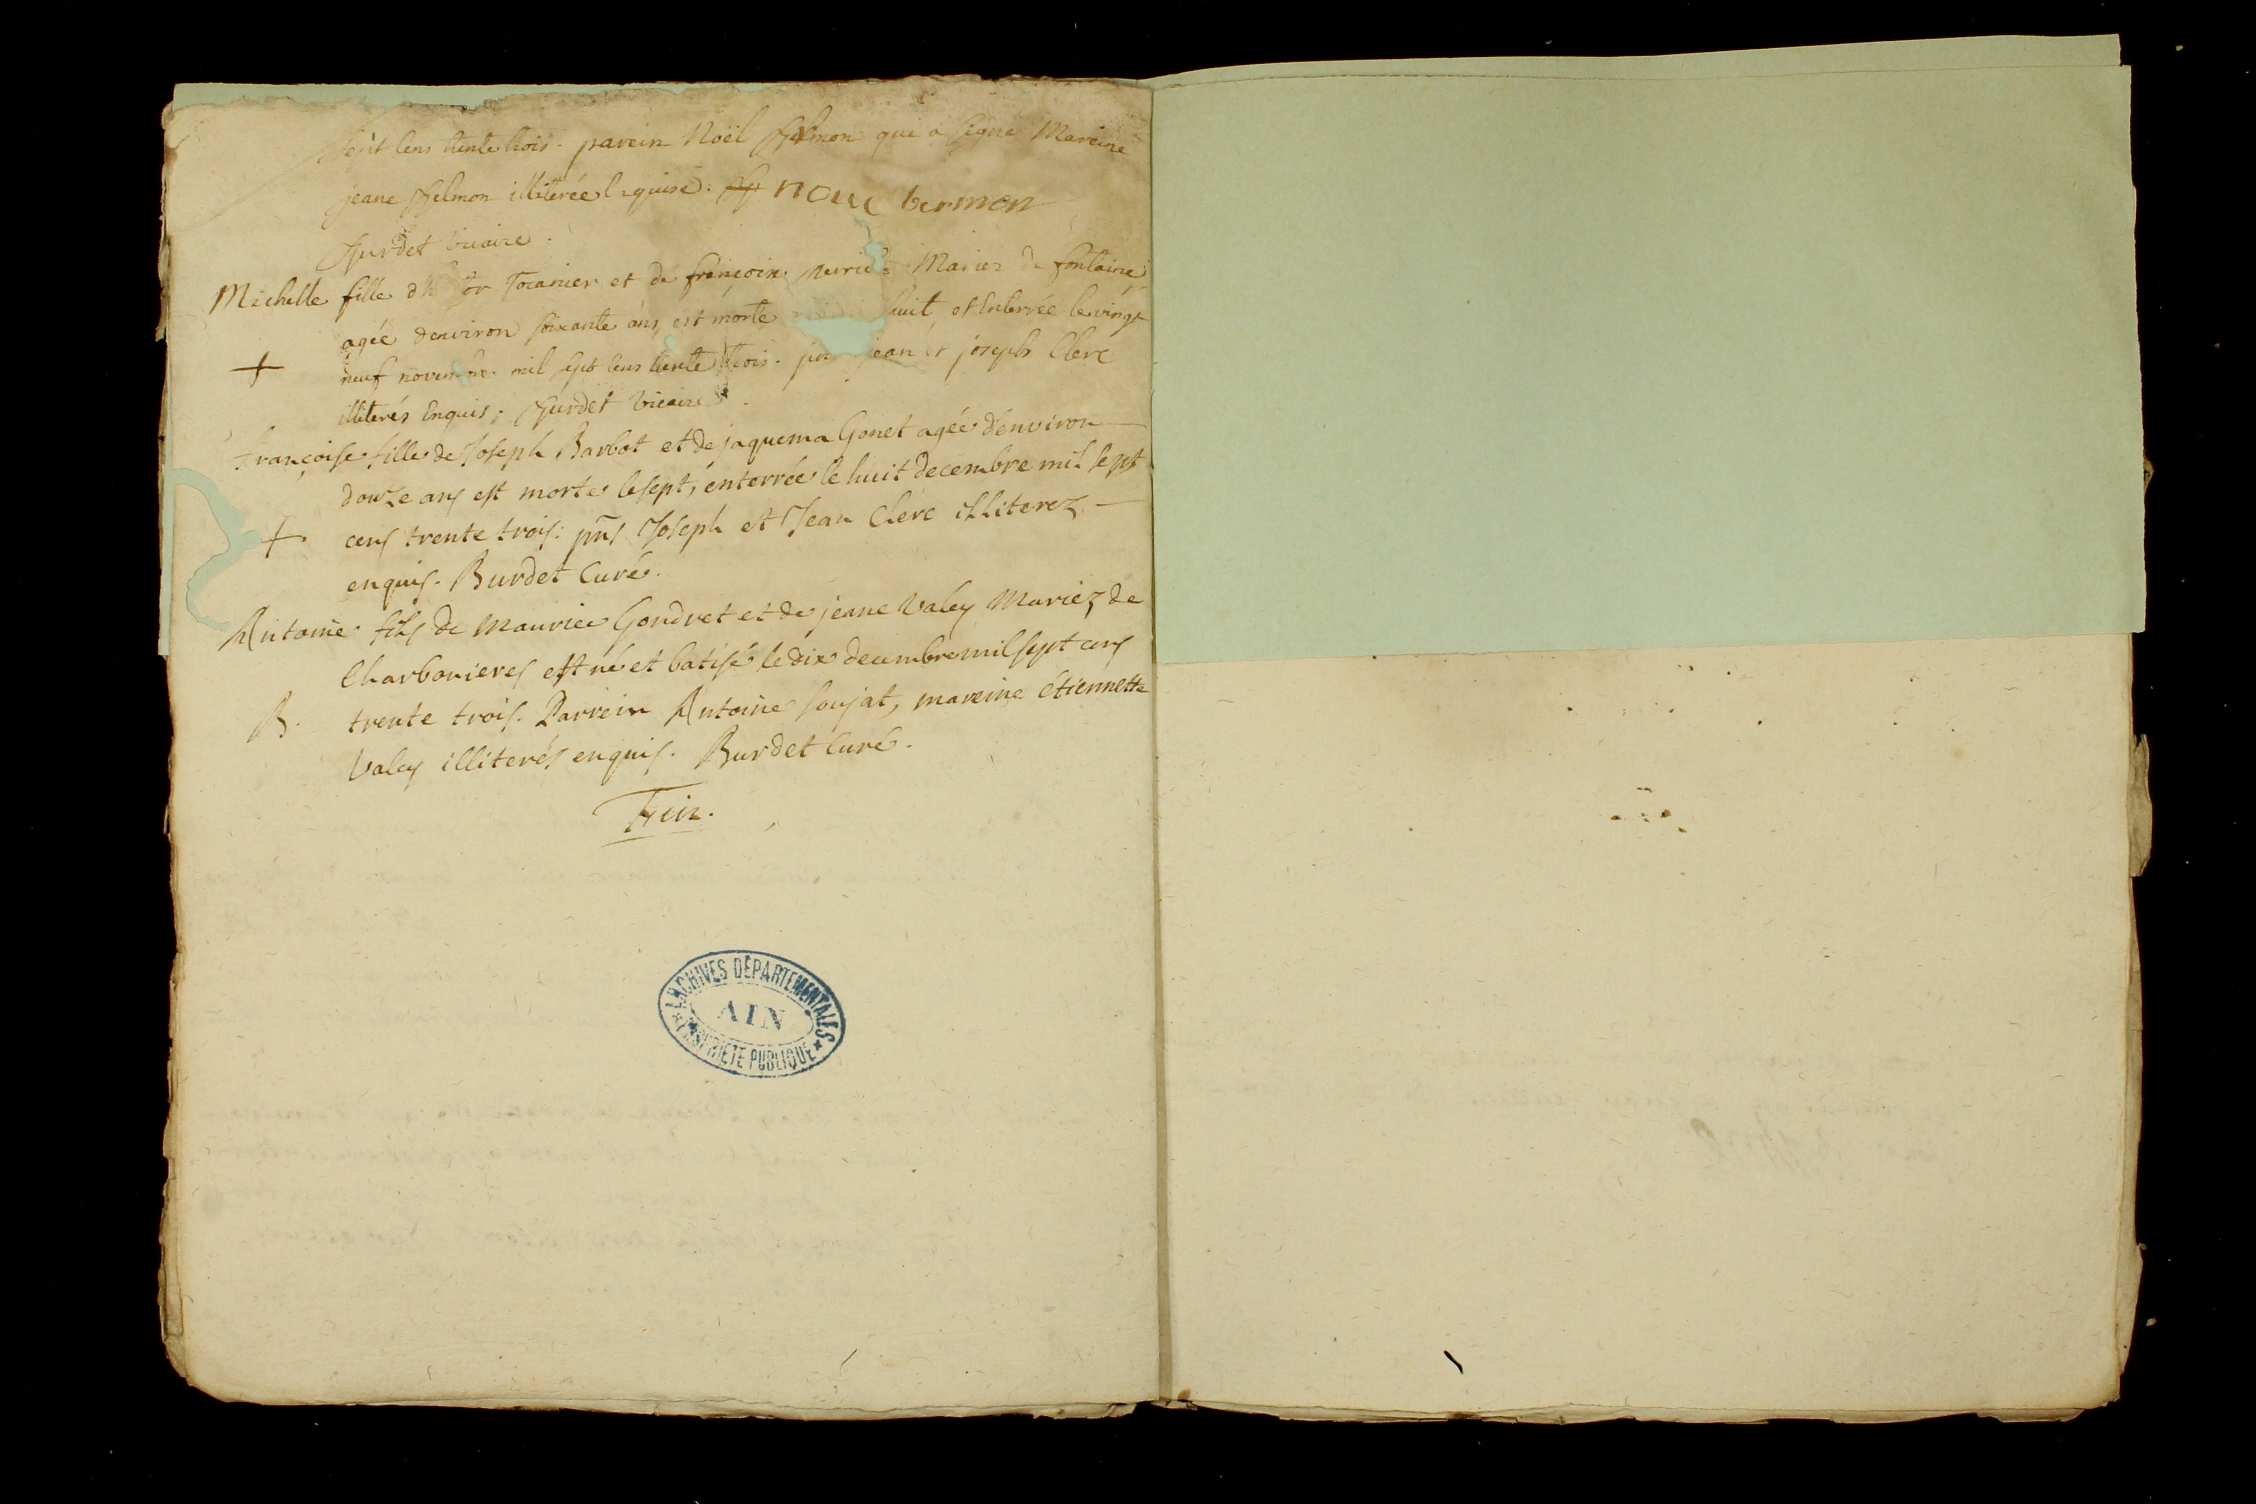 sept cens trente trois. parein Noël Belmon qui a signé Mareine
jeane Belmon illiterée enquise. bermon
Burdet vicaire.
Michelle fille Tocanier et de françoise Mariez de fontaine
agée denviron soixante ans, est morte huit, et Enterrée le vingt
+ neuf novembre mil sept cens trente trois. jean et joseph Clerc
illiterés Enquis; Burdet vicaire
françoise fille de Joseph Barbot et de jaquema Gonet agée d'environ
douze ans est morte le sept, enterrée le huit decembre mil sept
+ cens trente trois: pnts Joseph et Jean Clerc illiterez
enquis. Burdet Curé.
Antoine fils de Maurice Gondret et de jeane Valey Mariez de
Charbonieres est né et batisé le dix decembre mil sept cens
B. trente trois. Parrein Antoine soujat, mareine étiennette
Valey illiterés enquis. Burdet Curé.
Fin.
ARCHIVES DÉPARTEMENTALES
AIN
PROPRIÉTÉ PUBLIQUE